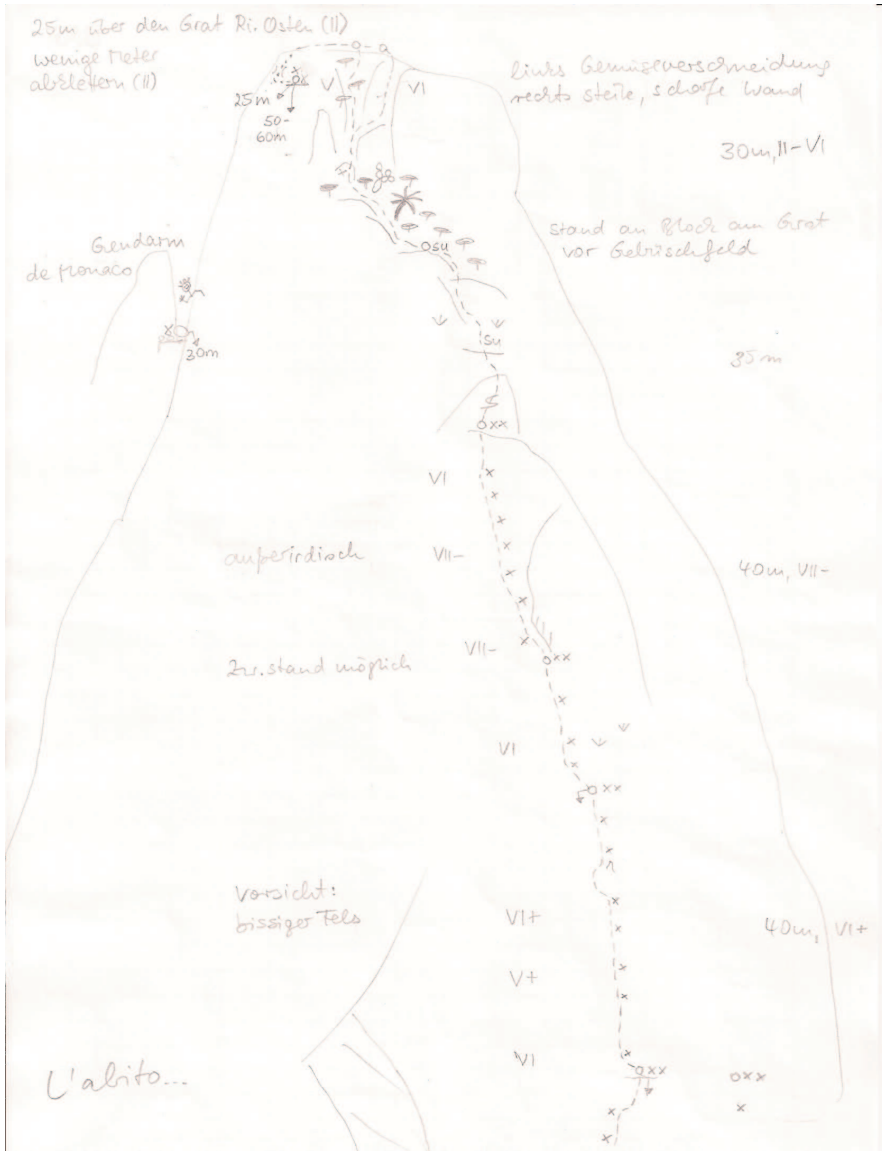 25m über den Grat Ri. Osten (II)
wenige Meter
abklettern (II)
links Gemüseverschneidung
rechts steile, scharfe Wand
25m
50-
60m
V
VI
30m, II-VI
Stand an Block am Grat
vor Gebüschfeld
SU
Gendarm
de Monaco
30m
SU
35m
xx
VI
außerirdisch
VII-
40m, VII-
VII-
xx
Zw. stand möglich
VI
xx
Vorsicht:
bissiger Fels
VI+
40m, VI+
V+
VI
xx
xx
L'abito...